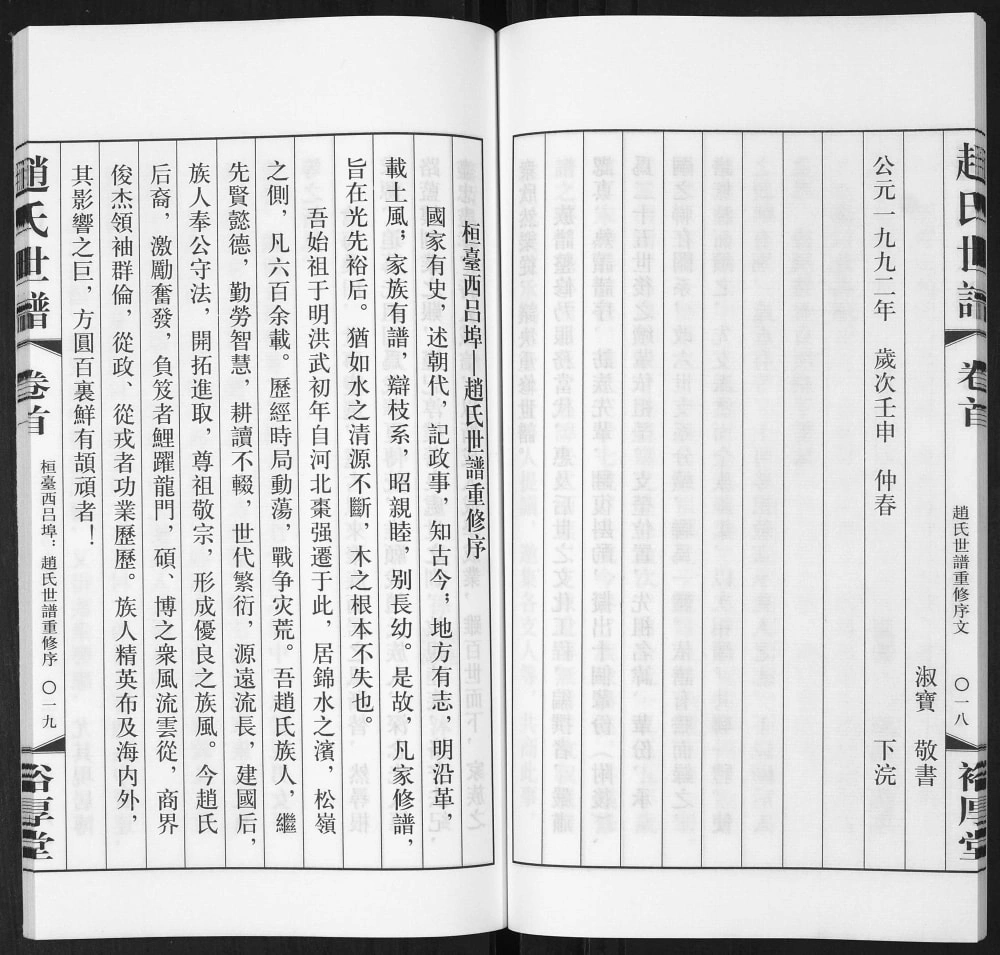 淑寶　敬書
公元一九九二年　歲次壬申　仲春　下浣
趙氏世譜　卷首　趙氏世譜重修序文　〇一八　裕厚堂
桓臺西呂埠　趙氏世譜重修序
國家有史，述朝代，記政事，知古今；地方有志，明沿革，
載土風；家族有譜，辯枝系，昭親睦，别長幼。是故，凡家修譜，
旨在光先裕后。猶如水之清源不斷，木之根本不失也。
吾始祖于明洪武初年自河北棗强遷于此，居錦水之濱，松嶺
之側，凡六百余載。歷經時局動蕩，戰争灾荒。吾趙氏族人，繼
先賢懿德，勤勞智慧，耕讀不輟，世代繁衍，源遠流長，建國后，
族人奉公守法，開拓進取，尊祖敬宗，形成優良之族風。今趙氏
后裔，激勵奮發，負笈者鯉躍龍門，碩、博之衆風流雲從，商界
俊杰領袖群倫，從政、從戎者功業歷歷。族人精英布及海内外，
其影響之巨，方圓百裏鮮有頡頏者！
趙氏世譜　卷首　桓臺西呂埠：趙氏世譜重修序　〇一九　裕厚堂